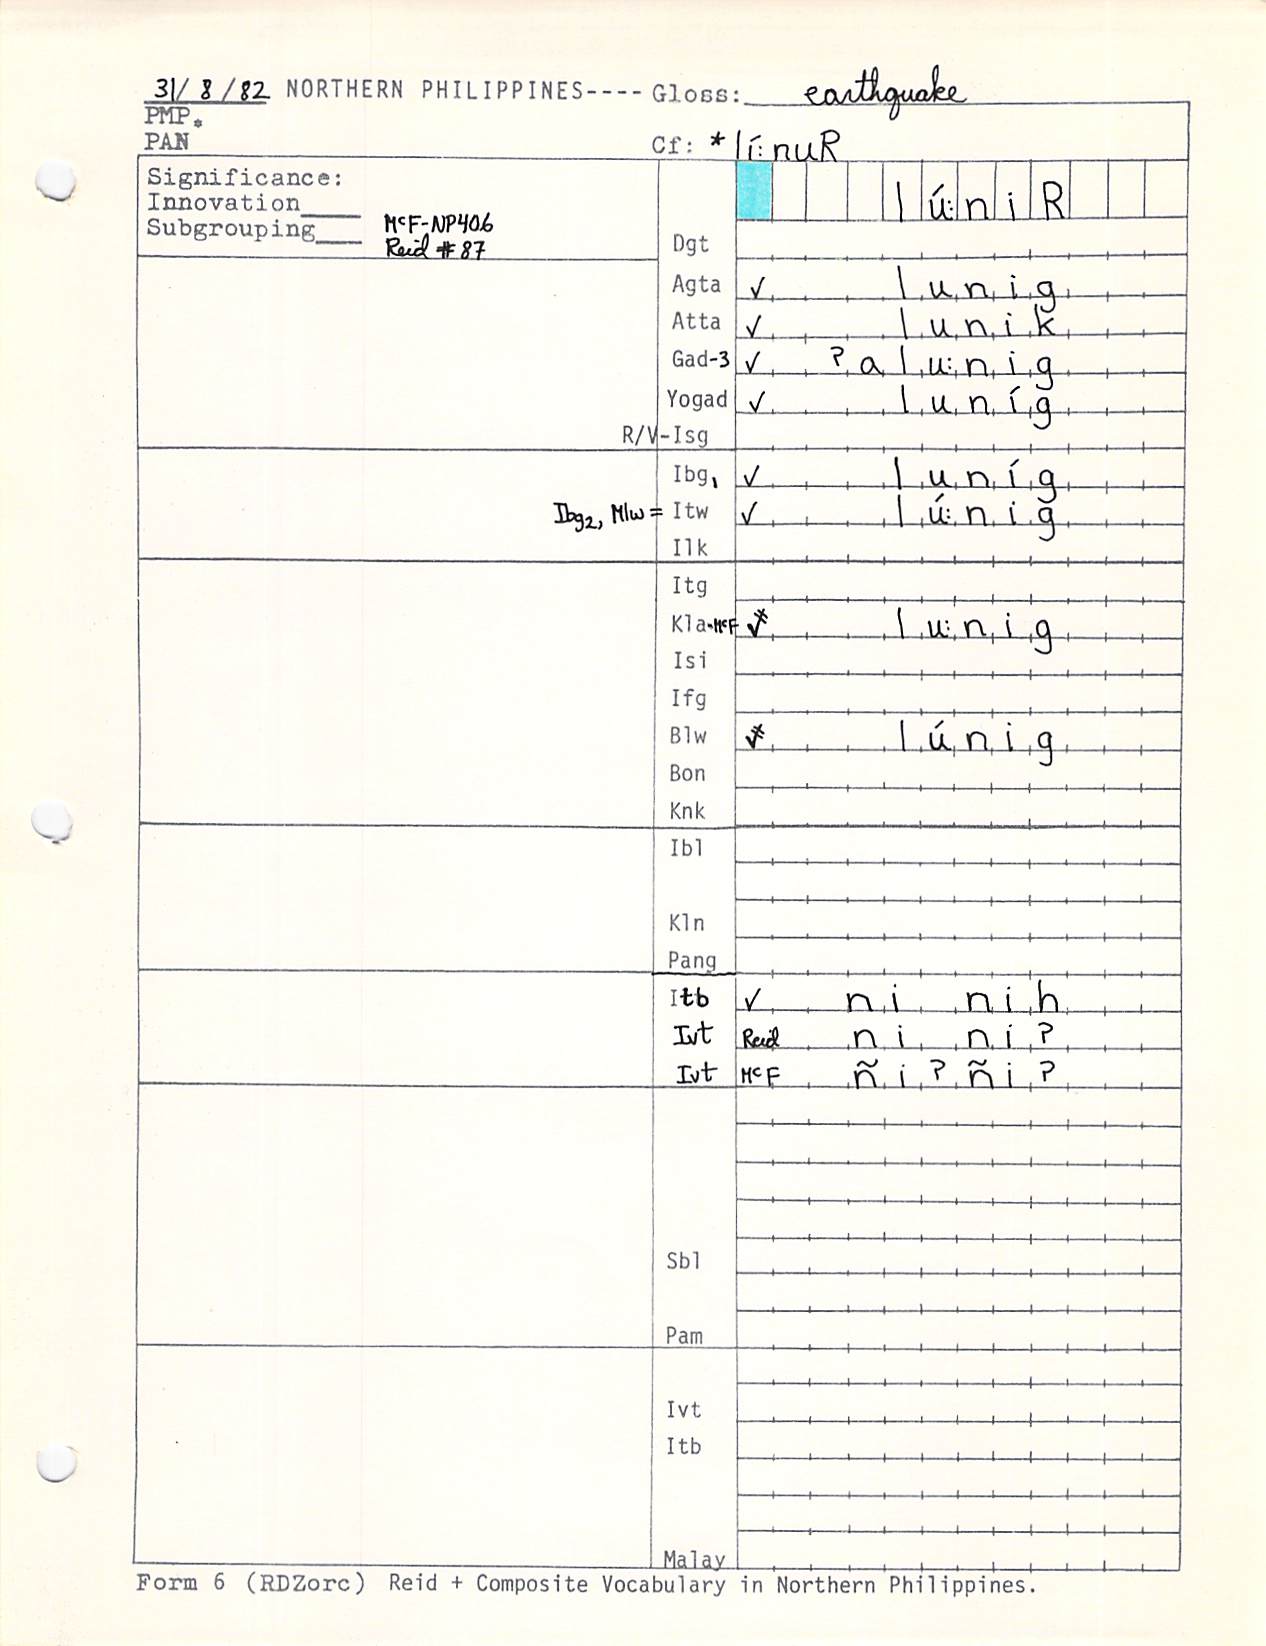 31/8/82 NORTHERN PHILIPPINES---- Gloss: earthquake
PMP.
PAN Cf: *lí:nuR
Significance:
Innovation____ lú:niR
Subgrouping____ McF-NP406
Reid #87
Dgt
Agta ✓ lunig
Atta ✓ lunik
Gad-3 ✓ ?alu:nig
Yogad ✓ luníg
R/V-Isg
Ibg₁ ✓ luníg
Ibg₂, Mlw = Itw ✓ lú:nig̃
Ilk
Itg
Kla-McF ✓* lu:nig
Isi
Ifg
Blw ✓* lúnig
Bon
Knk
Ibl
Kln
Pang
Itb ✓ ni nih
Ivt Reid ni ni?
Ivt McF ñi?ñi?
Sbl
Pam
Ivt
Itb
Malay
Form 6 (RDZorc) Reid + Composite Vocabulary in Northern Philippines.